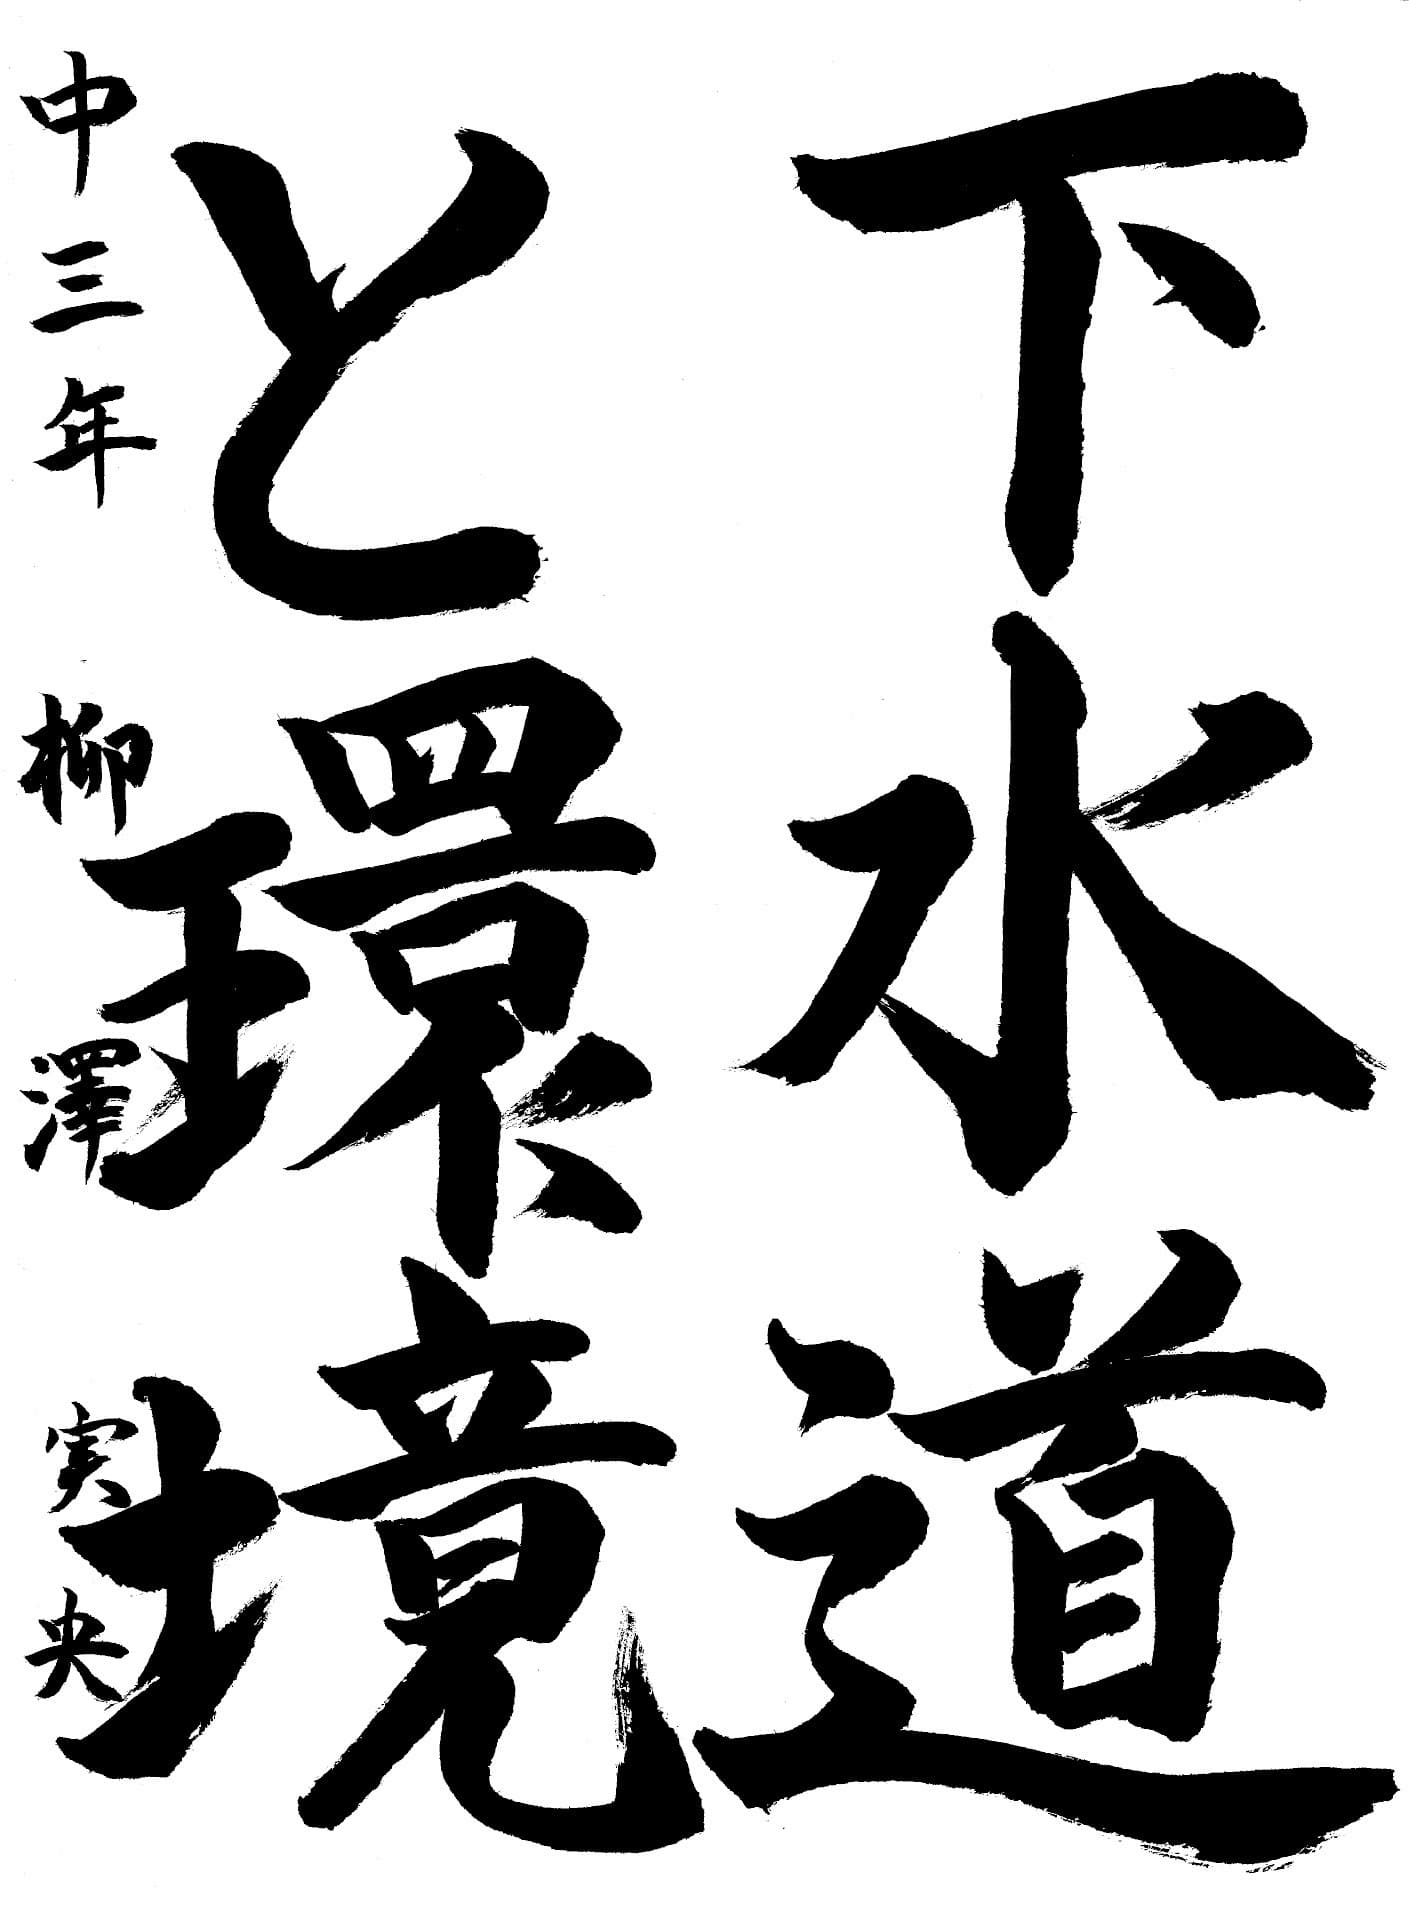 下水道
と環境
中三年 柳澤実央